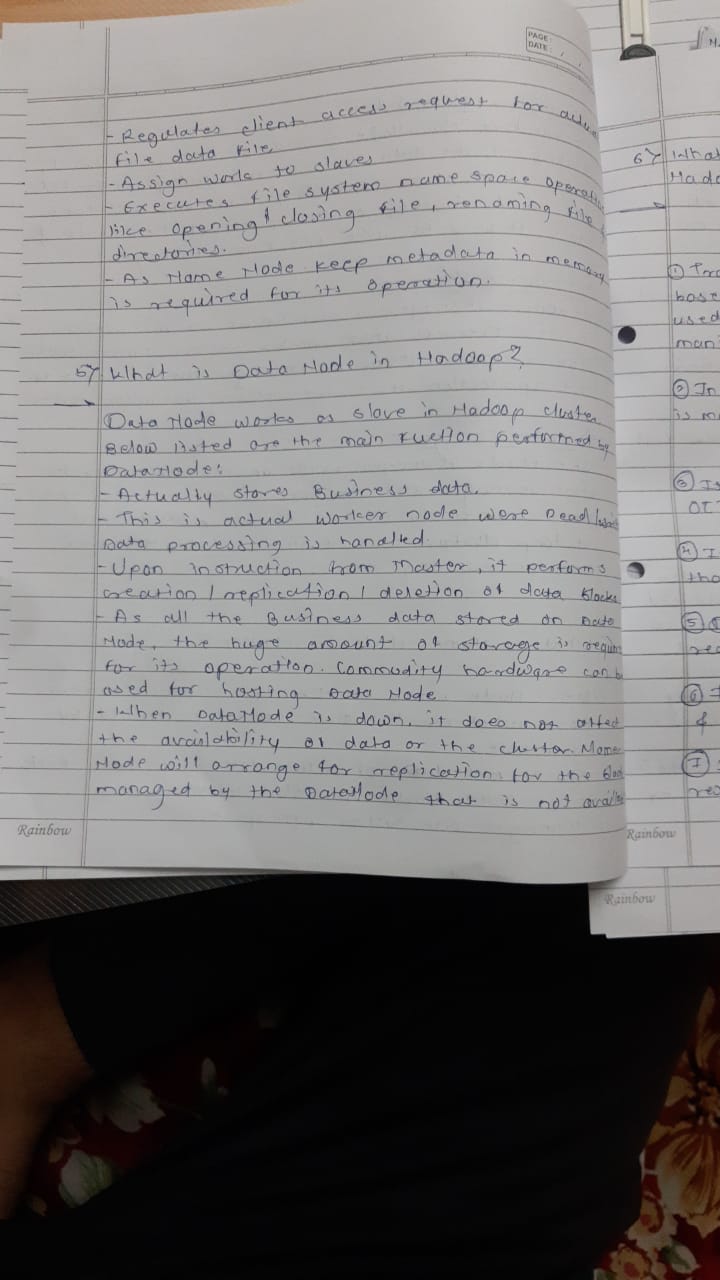 PAGE:
DATE: / /
- Regulates client access request for actual
file data file
- Assign work to slaves
- Executes file system name space operati
like opening & closing file, renaming file
directories.
- As Name Node keep metadata in memory
is required for its operation.
5) What is Data Node in Hadoop?
Data Node works as slave in Hadoop cluster
Below listed are the main fuction performed by
DataNode:
- Actually stores Business data.
- This is actual worker node were Read
Data processing is handled.
- Upon instruction from Master, it performs
creation / replication / deletion of data blocks
- As all the Business data stored on Data
Node, the huge amount of storage is requir
for its operation. Commodity hardware can b
used for hosting Data Node
- When DataNode is down, it does not affect
the availability of data or the cluster. Name
Node will arrange for replication for the Block
managed by the DataNode that is not availa
Rainbow
6) What
Hado
① For
base
used
man
② In
is m
③ I
OI
④ I
tha
⑤
rec
⑥
&
rec
Rainbow
Rainbow